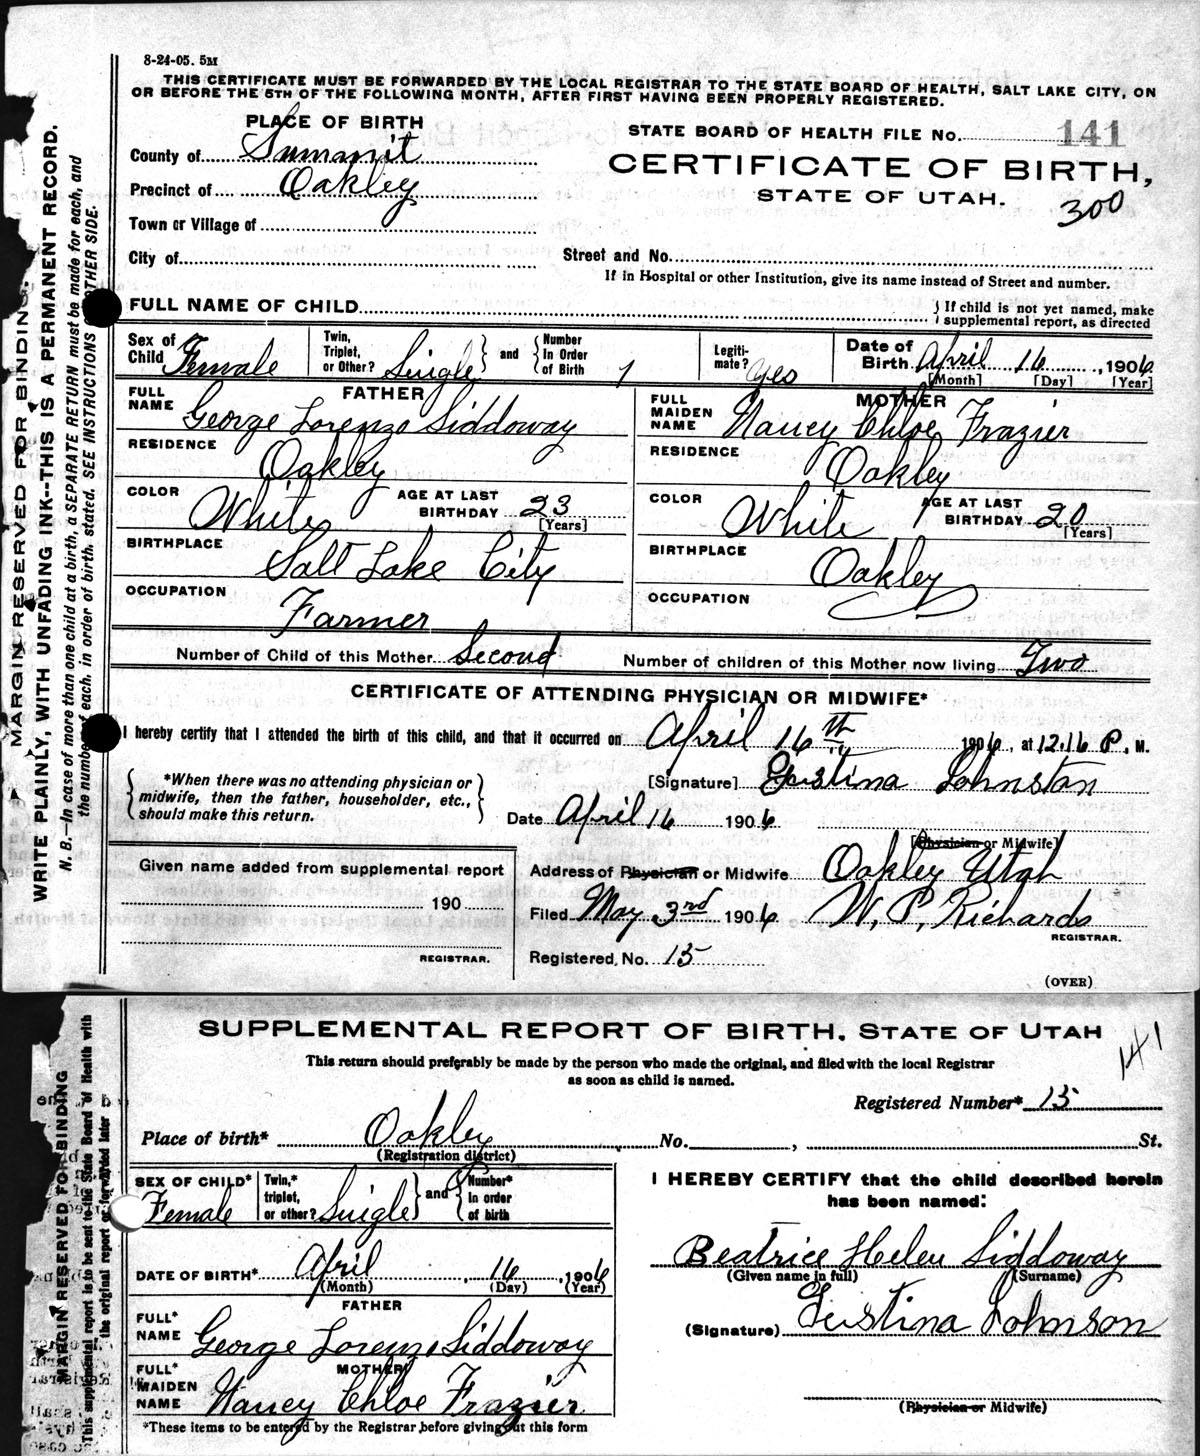 8-24-05. 5M
THIS CERTIFICATE MUST BE FORWARDED BY THE LOCAL REGISTRAR TO THE STATE BOARD OF HEALTH, SALT LAKE CITY, ON
OR BEFORE THE 5TH OF THE FOLLOWING MONTH, AFTER FIRST HAVING BEEN PROPERLY REGISTERED.
PLACE OF BIRTH
STATE BOARD OF HEALTH FILE No. 141
County of Summit
CERTIFICATE OF BIRTH,
Precinct of Oakley
STATE OF UTAH.
300
Town or Village of
City of
Street and No.
If in Hospital or other Institution, give its name instead of Street and number.
FULL NAME OF CHILD
If child is not yet named, make
supplemental report, as directed
Sex of Child Female Twin, Triplet, or Other? Single and Number In Order of Birth 1 Legiti-mate? yes Date of Birth April 16, 1906
[Month] [Day] [Year]
FATHER
FULL NAME George Lorenzo Siddoway
RESIDENCE Oakley
COLOR White AGE AT LAST BIRTHDAY 23
[Years]
BIRTHPLACE Salt Lake City
OCCUPATION Farmer
MOTHER
FULL MAIDEN NAME Nancy Chloe Frazier
RESIDENCE Oakley
COLOR White AGE AT LAST BIRTHDAY 20
[Years]
BIRTHPLACE Oakley
OCCUPATION
Number of Child of this Mother Second Number of children of this Mother now living Two
CERTIFICATE OF ATTENDING PHYSICIAN OR MIDWIFE*
I hereby certify that I attended the birth of this child, and that it occurred on April 16th 1906, at 12.16 P. M.
*When there was no attending physician or
midwife, then the father, householder, etc.,
should make this return.
[Signature] Gustina Johnston
Date April 16 1906
[Physician or Midwife]
Given name added from supplemental report
190
REGISTRAR.
Address of Physician or Midwife Oakley Utah
Filed May 3rd 1906 W. P. Richards
REGISTRAR.
Registered, No. 15
(OVER)
MARGIN RESERVED FOR BINDING.
WRITE PLAINLY, WITH UNFADING INK--THIS IS A PERMANENT RECORD.
N. B.--In case of more than one child at a birth, a SEPARATE RETURN must be made for each, and
the number of each, in order of birth, stated. SEE INSTRUCTIONS OTHER SIDE.
SUPPLEMENTAL REPORT OF BIRTH, STATE OF UTAH
141
This return should preferably be made by the person who made the original, and filed with the local Registrar
as soon as child is named.
Registered Number* 15
Place of birth* Oakley No. , St.
(Registration district)
SEX OF CHILD* Female Twin,* triplet, or other? Single and Number* In order of birth
DATE OF BIRTH* April 16, 1906
(Month) (Day) (Year)
FATHER
FULL* NAME George Lorenzo Siddoway
MOTHER
FULL* MAIDEN NAME Nancy Chloe Frazier
*These items to be entered by the Registrar before giving out this form
I HEREBY CERTIFY that the child described herein
has been named:
Beatrice Helen Siddoway
(Given name in full) (Surname)
(Signature) Gustina Johnson
(Physician or Midwife)
MARGIN RESERVED FOR BINDING
This supplemental report is to be sent to the State Board of Health with
the original report or forwarded later